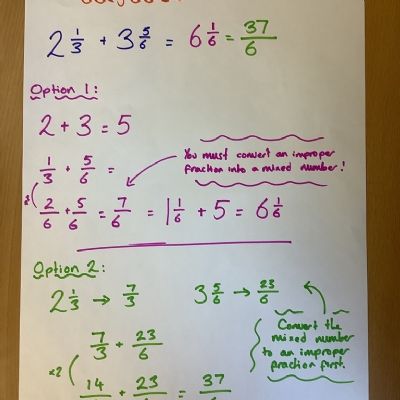 2 1/3 + 3 5/6 = 6 1/6 = 37/6
Option 1:
2 + 3 = 5
You must convert an improper
fraction into a mixed number!
1/3 + 5/6 =
×2
2/6 + 5/6 = 7/6 = 1 1/6 + 5 = 6 1/6
Option 2:
2 1/3 → 7/3 3 5/6 → 23/6
Convert the
mixed number
to an improper
fraction first.
7/3 + 23/6
×2
14/ + 23/ = 37/